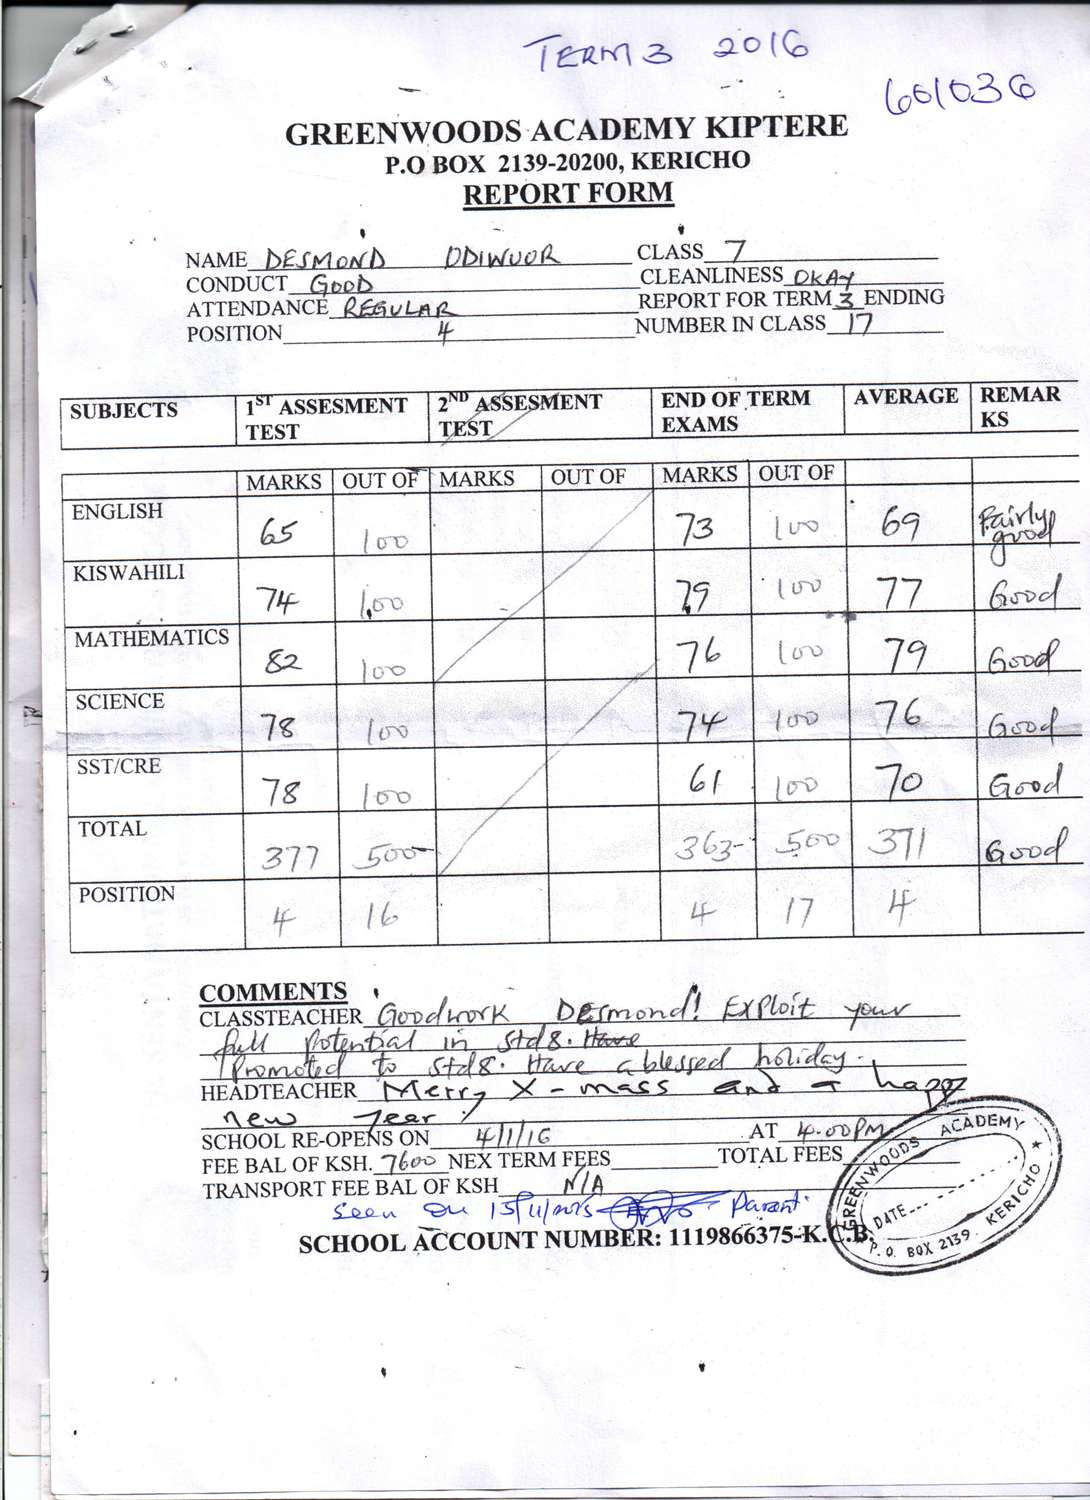 TERM 3 2016
601036
GREENWOODS ACADEMY KIPTERE
P.O BOX 2139-20200, KERICHO
REPORT FORM
NAME DESMOND ODIWUOR CLASS 7
CONDUCT GOOD CLEANLINESS OKAY
ATTENDANCE REGULAR REPORT FOR TERM 3 ENDING
POSITION 4 NUMBER IN CLASS 17
SUBJECTS 1ST ASSESMENT TEST 2ND ASSESMENT TEST END OF TERM EXAMS AVERAGE REMARKS
MARKS OUT OF MARKS OUT OF MARKS OUT OF
ENGLISH 65 100 73 100 69 Fairly good
KISWAHILI 74 100 79 100 77 Good
MATHEMATICS 82 100 76 100 79 Good
SCIENCE 78 100 74 100 76 Good
SST/CRE 78 100 61 100 70 Good
TOTAL 377 500 363 500 371 Good
POSITION 4 16 4 17 4
COMMENTS
CLASSTEACHER Goodwork Desmond! Exploit your
full potential in Std 8. Have
Promoted to Std 8. Have a blessed holiday.
HEADTEACHER Merry X-mass and a happy
new year.
SCHOOL RE-OPENS ON 4/1/16 AT 4.00PM
FEE BAL OF KSH. 7600 NEX TERM FEES TOTAL FEES
TRANSPORT FEE BAL OF KSH N/A
Seen on 15/11/2015 Parent.
SCHOOL ACCOUNT NUMBER: 1119866375-K.C.B.
GREENWOODS ACADEMY
DATE
P. O. BOX 2139 KERICHO